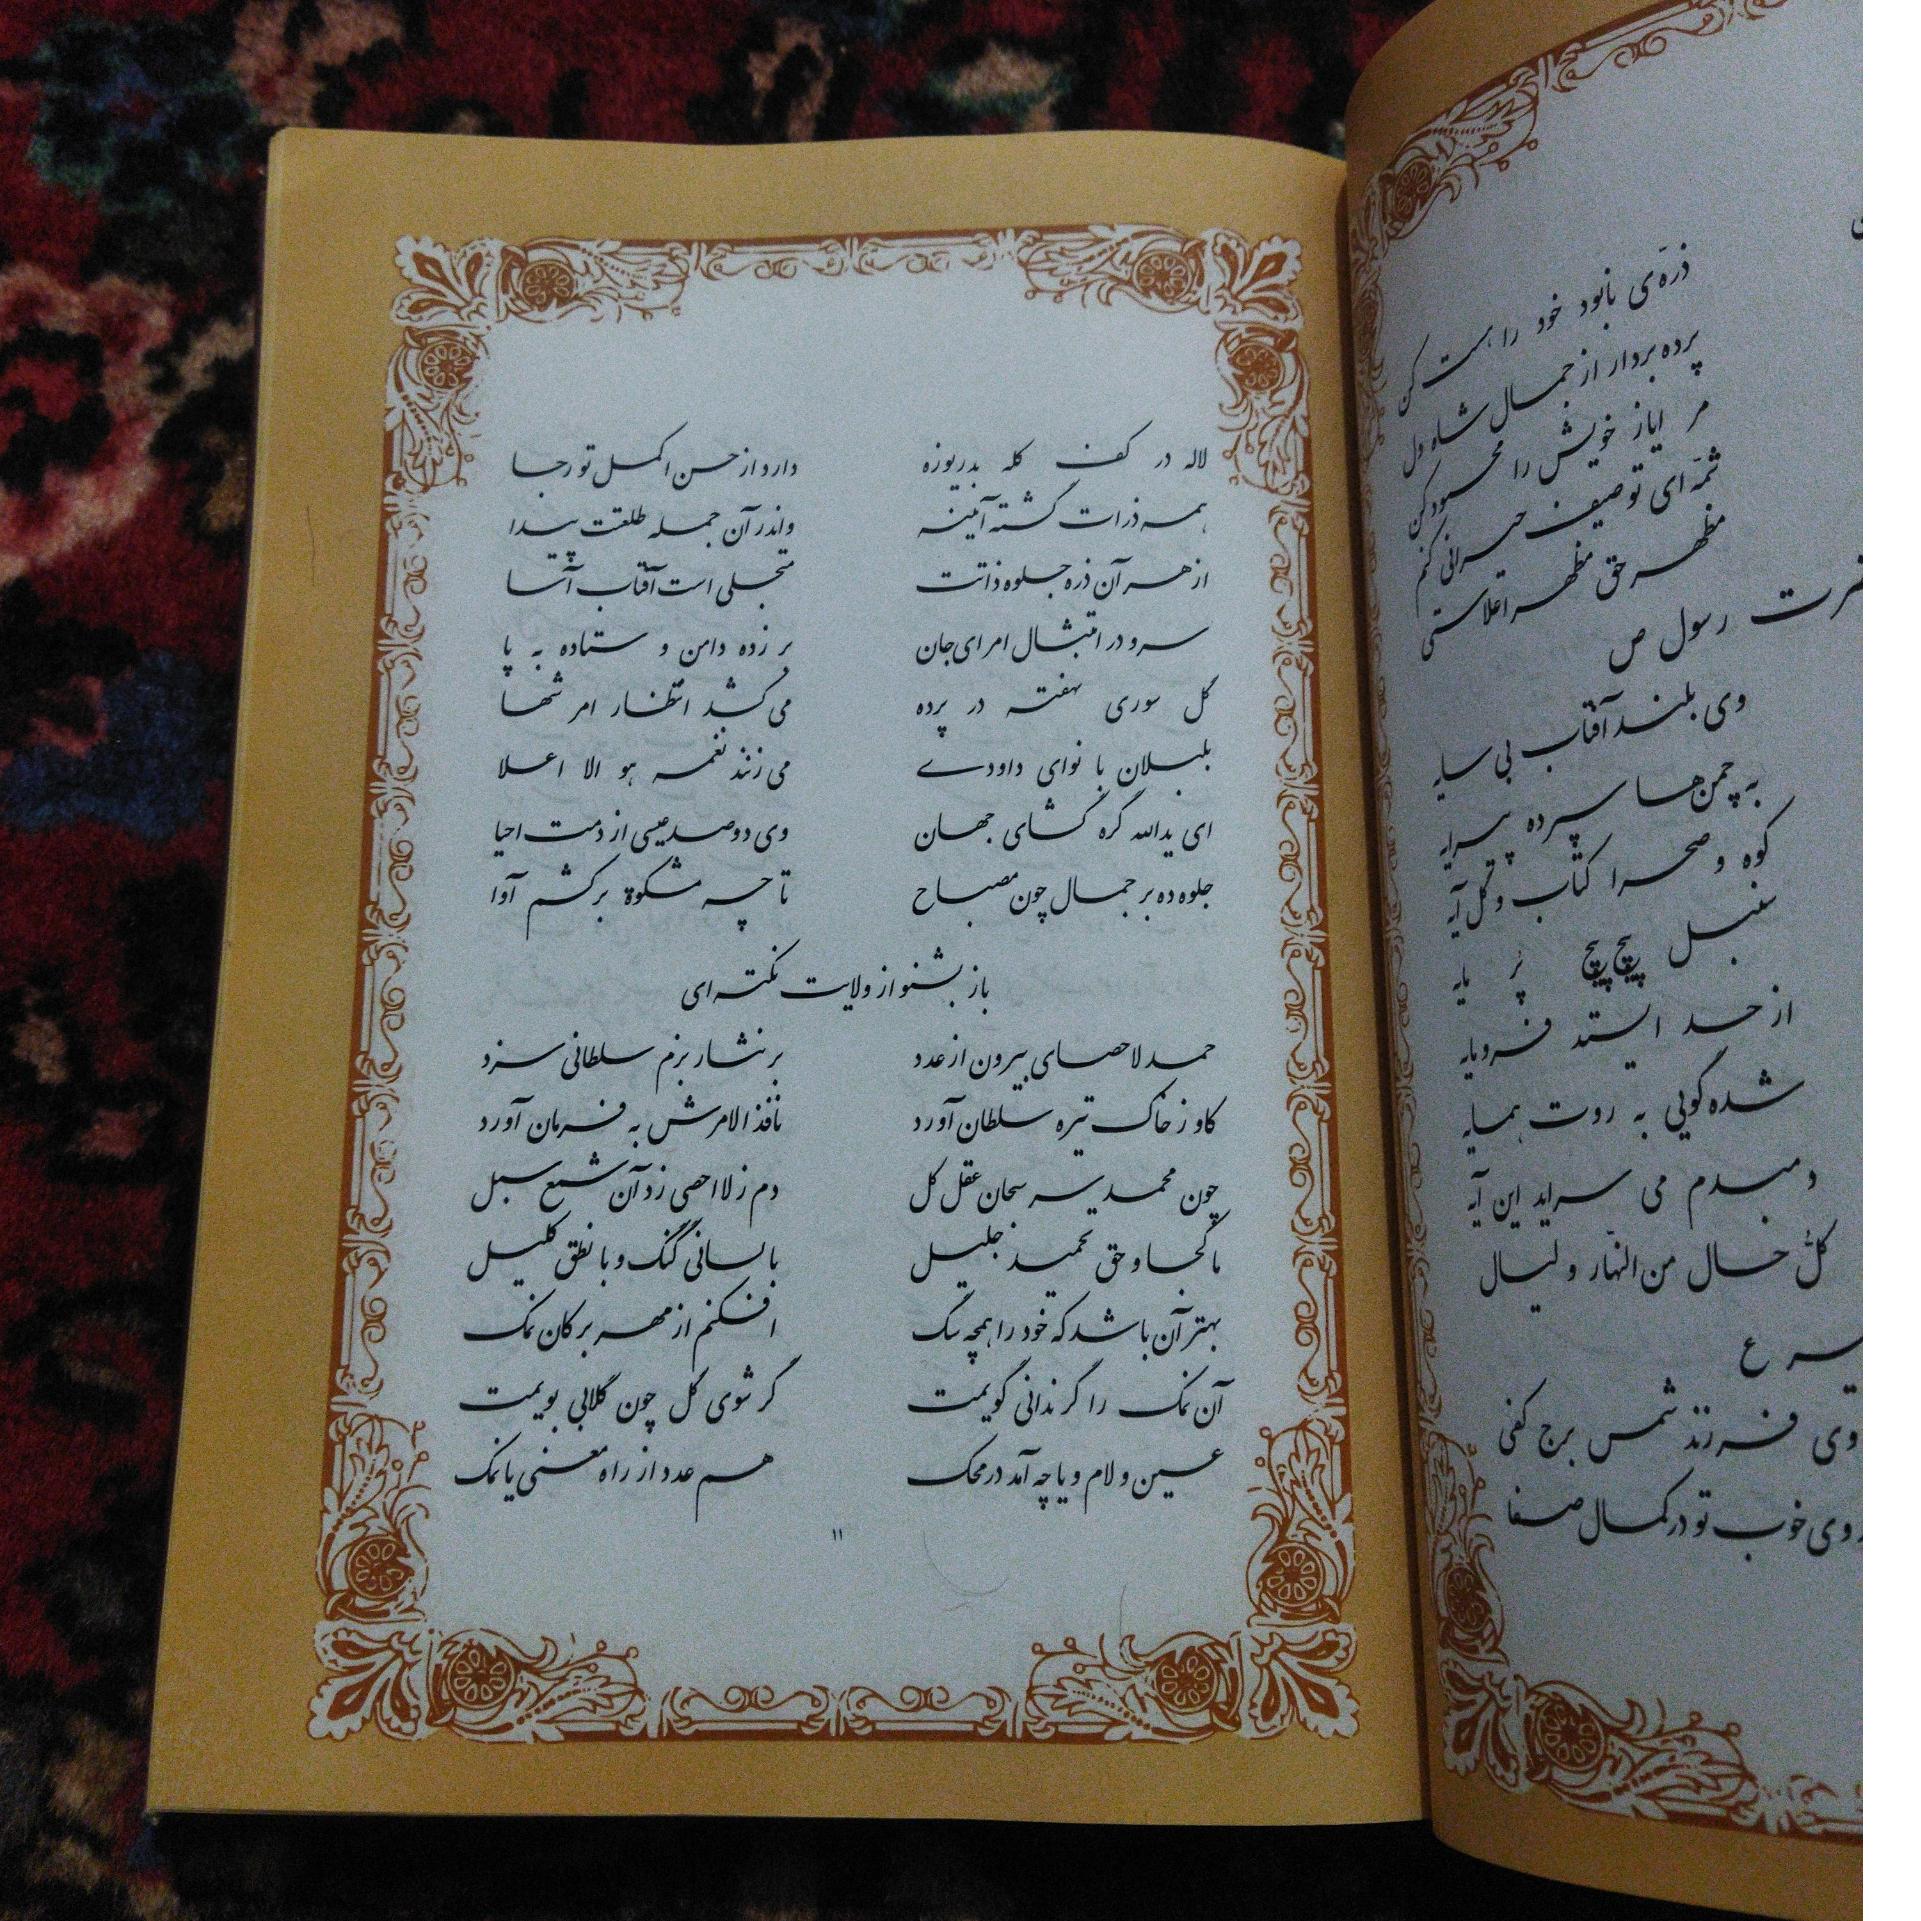 لاله در کف کله بدریوزه دارد از حسن اکمل تو رجا
همه ذرات گشته آئینه واندر آن جمله طلعتت پیدا
از هر آن ذره جلوه ذاتت متجلی است آفتاب آسا
سرو در امتثال امر ای جان بر زده دامن و ستاده به پا
گل سوری نهفته در پرده می کشد انتظار امر شها
بلبلان با نوای داودے می زنند نغمه هو الا اعلا
ای یدالله گره گشای جهان وی دوصد عیسی از دمت احیا
جلوه ده بر جمال چون مصباح تا چه مشکوة برکشم آوا
باز بشنو از ولایت نکته ای
حمد لا حصای بیرون از عدد بر نثار بزم سلطانی سزد
کاو ز خاک تیره سلطان آورد نافذ الامرش به فرمان آورد
چون محمد سر سبحان عقل کل دم ز لا احصی زد آن شمع سبل
ما کجا و حق تحمید جلیل با لسانی گنگ و با نطق کلیل
بهتر آن باشد که خود را همچه سگ افکنم از مهر بر کان نمک
آن نمک را گر ندانی گویمت گر شوی گل چون گلابی بویمت
عین و لام و یا چه آمد در محک هم عدد از راه معنی یا نمک
۱۱
ذرّه ی نابود خود را هست کن
پرده بردار از جمال شاه دل
مر ایاز خویش را محمود کن
شمّه ای توصیف حیرانی کنم
مظهر حق مظهر اعلاستی
رسول ص
وی بلند آفتاب بی سایه
به چمن ها سپرده سرایه
کوه و صحرا کتاب و گل آیه
سنبل پیچ پیچ پُر مایه
از حد ایستد فرومایه
شده گویی به روت همسایه
دمبدم می سراید این آیه
کلُّ حال من النهّار و لیال
ع
وی فرزند شمس برج کفی
روی خوب تو در کمال صفا